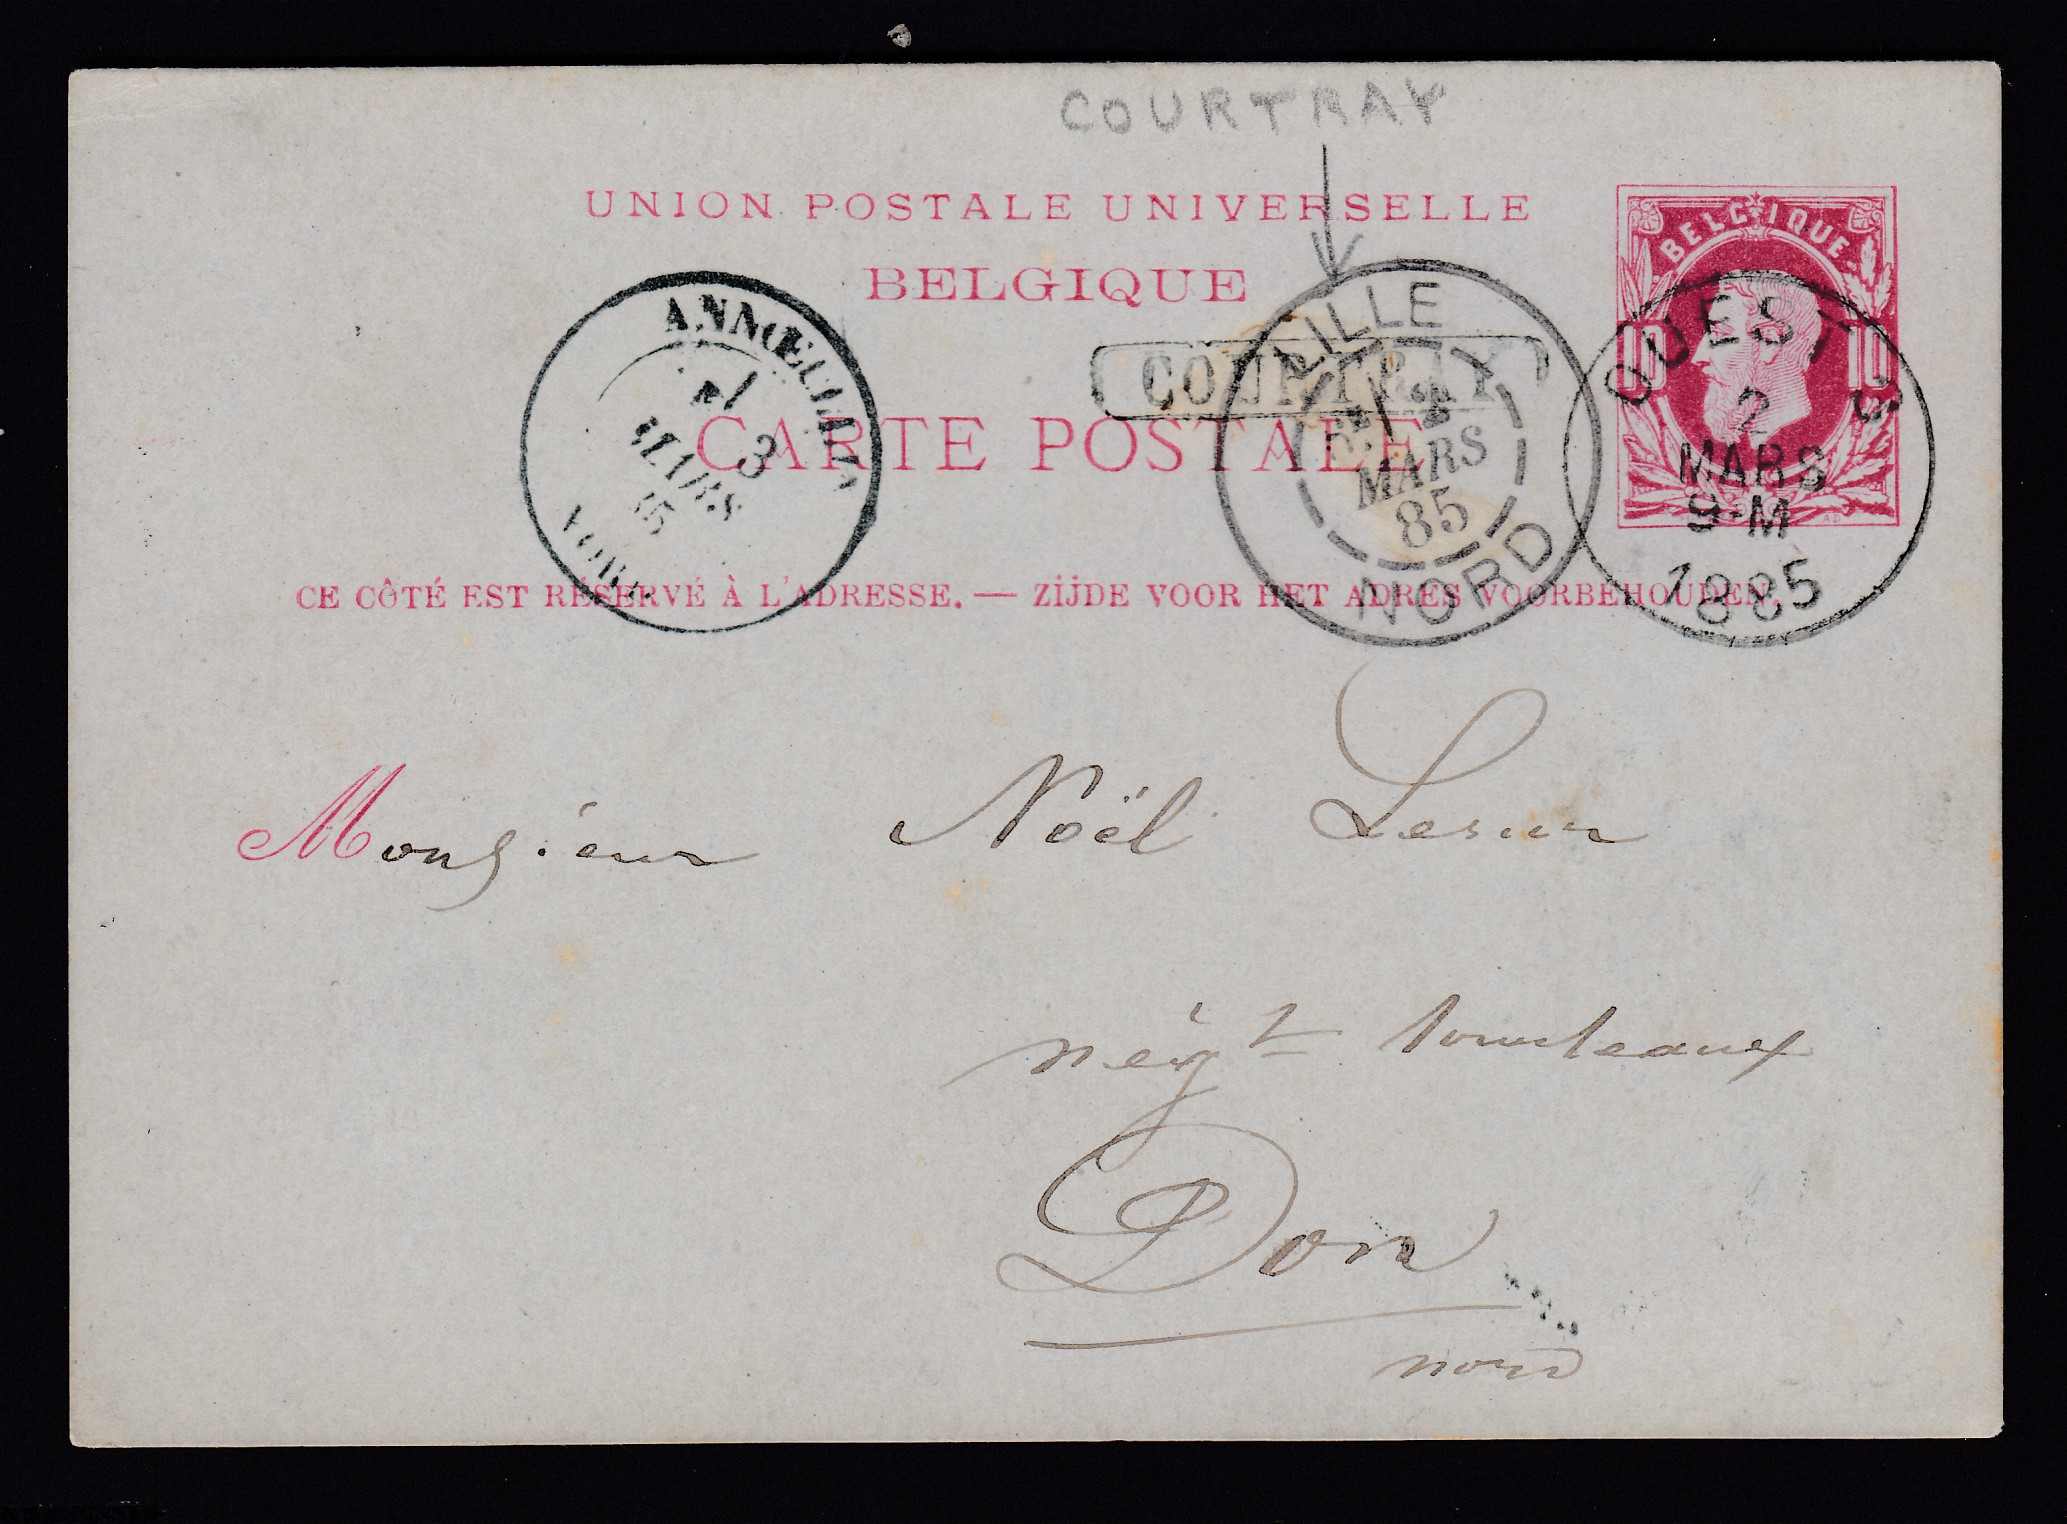 COURTRAY
UNION POSTALE UNIVERSELLE
BELGIQUE
CARTE POSTALE
CE CÔTÉ EST RÉSERVÉ À L'ADRESSE. — ZÏJDE VOOR HET ADRES VOORBEHOUDEN.
BELGIQUE
10 10
OUEST 3
2
MARS
9-M
1885
COURTRAY
LILLE
2
MARS
85
NORD
ANNŒULLIN
3
MARS
NORD
Monsieur Noël Lesur
négt
Don
nord